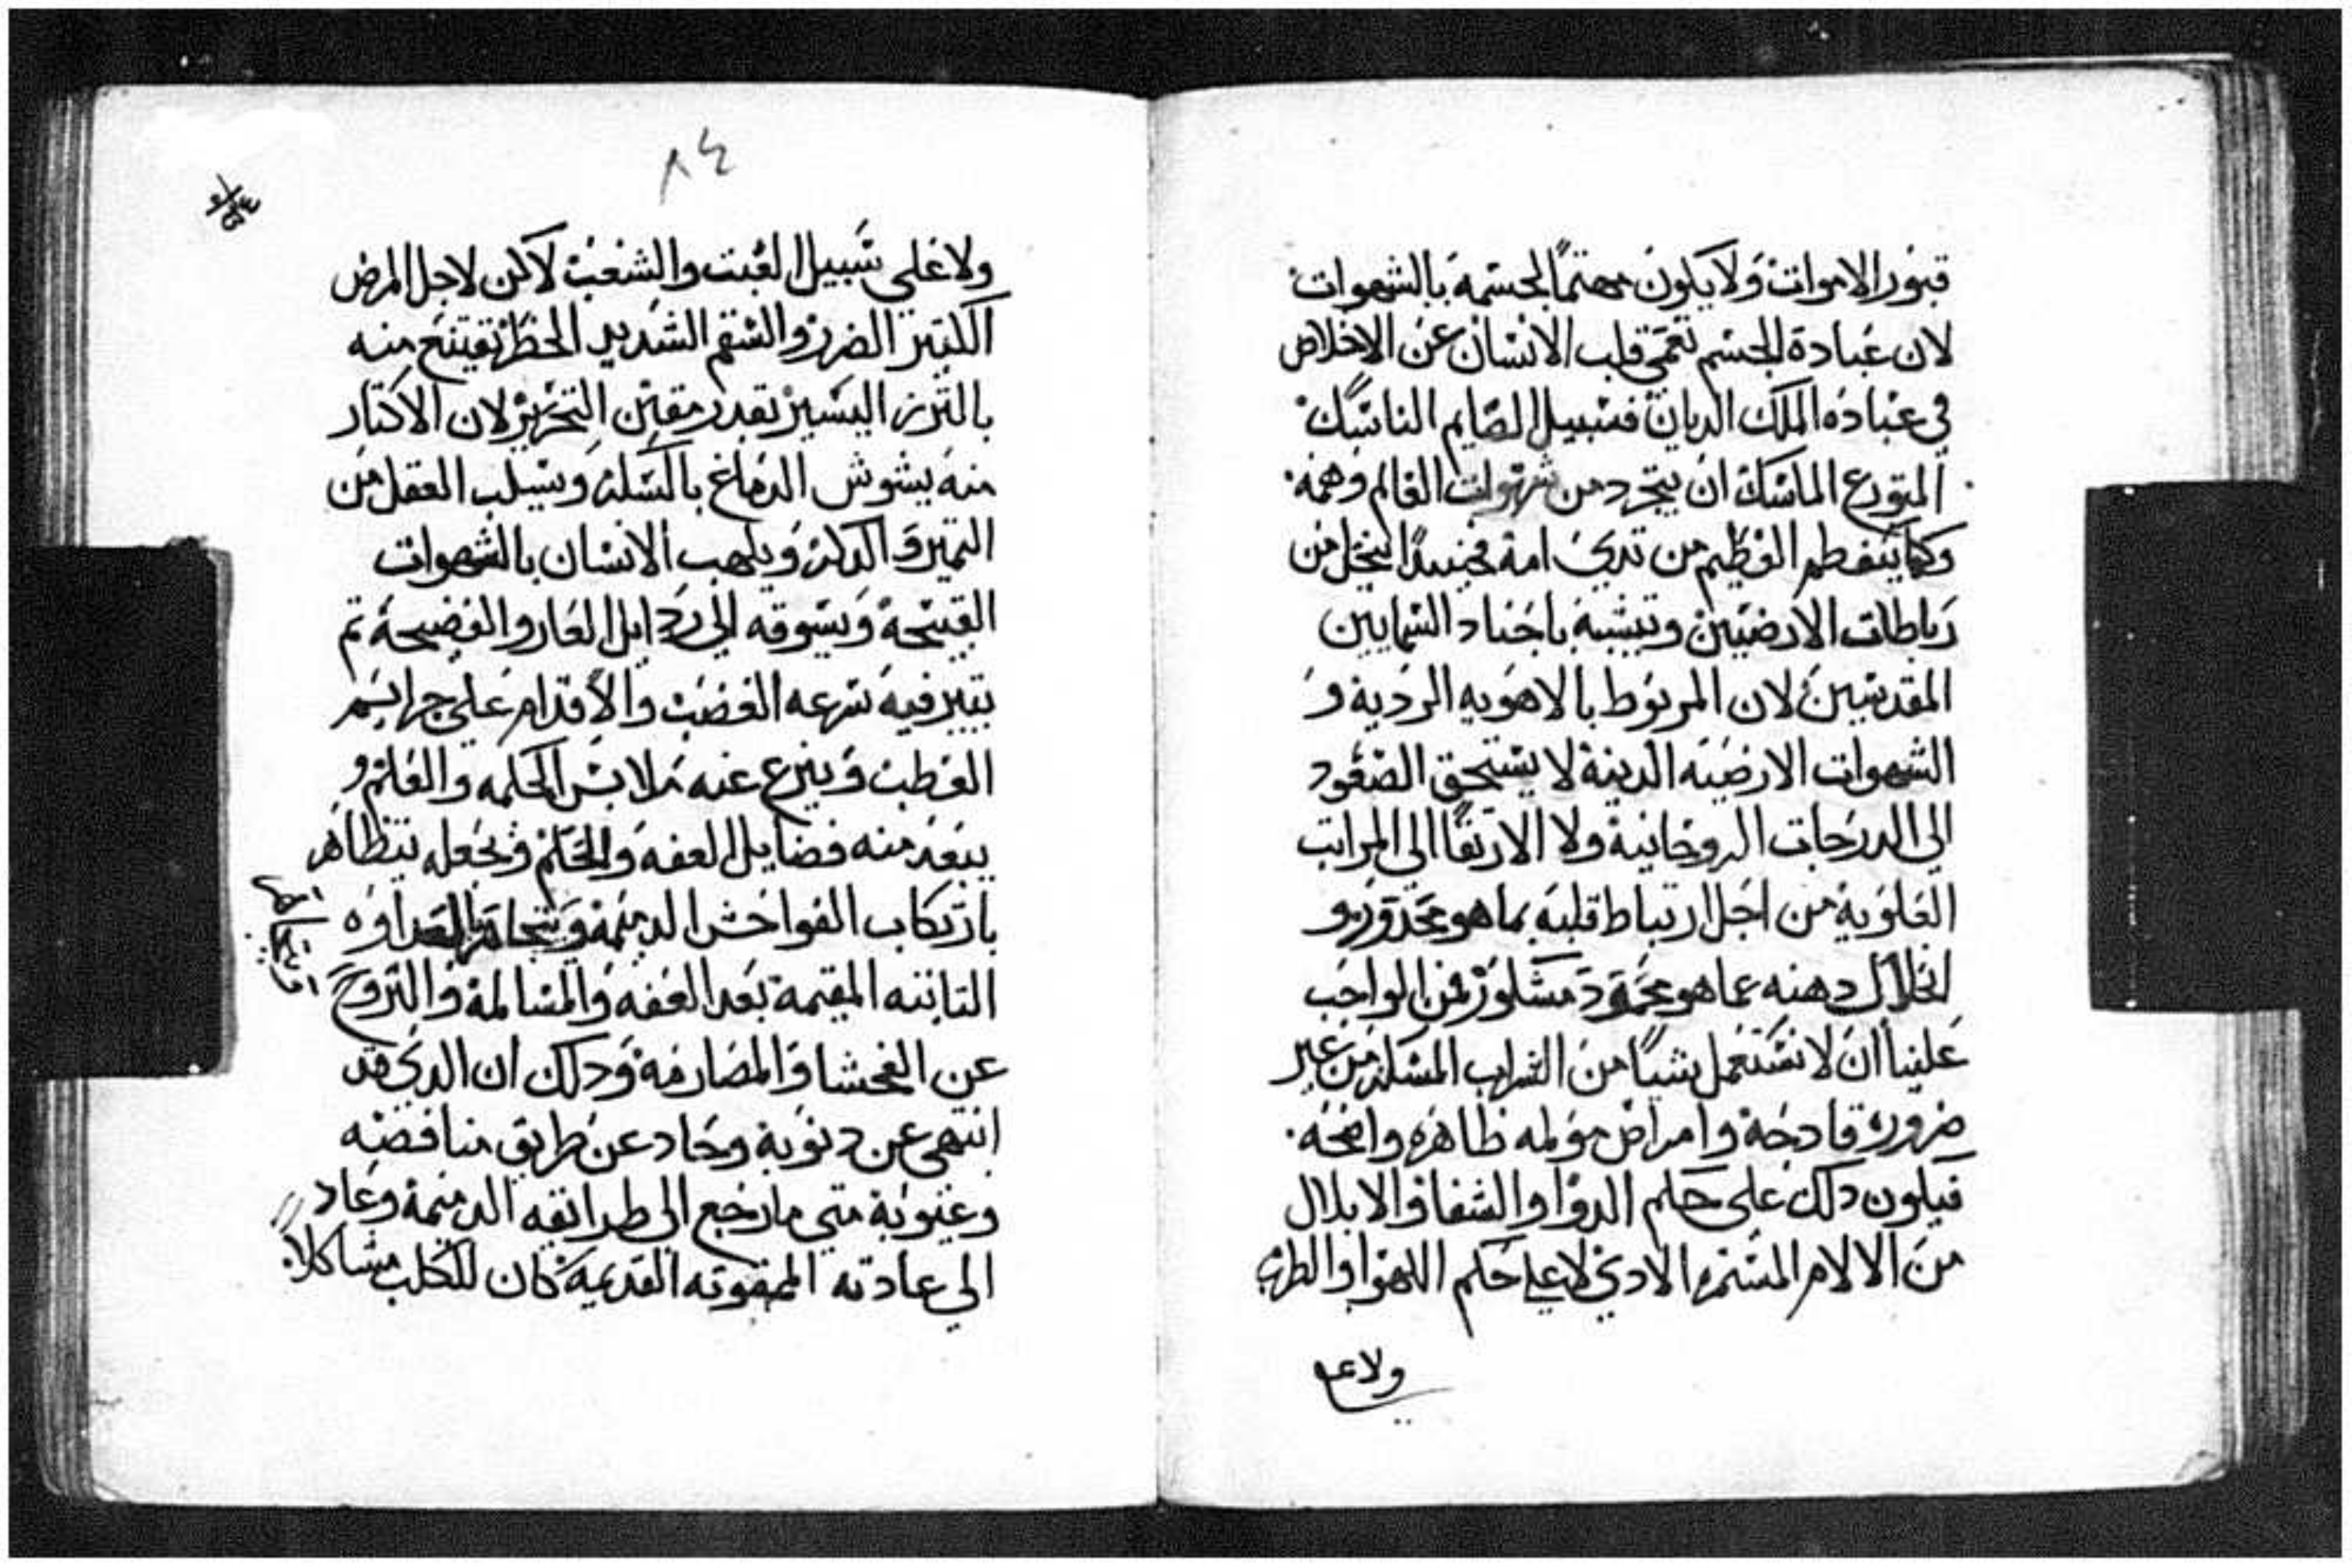 قبور الاموات ولا يكون مهتمًا لجسمه بالشهوات
لان عبادة الجسم تعمي قلب الانسان عن الاخلاص
في عباده الملك الديان فسبيل الصايم الناسك
المتورع الماسك ان يتجرد من شهوات العالم وهمه
وكما ينفطم الفطيم من تدي امه فحينيدًا ينحل من
رباطات الارضيين ويتشبه باجناد السمايين
المقدسين لان المربوط بالاهويه الرديه و
الشهوات الارضيه الدينة لا يستحق الصعود
الي الدرجات الروحانية ولا الارتقا الى المراتب
العلويه من اجل ارتباط قلبه بما هو محدور و
انحلال دهنه عما هو محمود مشكور فمن الواجب
علينا ان لا نستعمل شيًا من الشراب المسكر من غير
ضروره قادحة وامراض مولمه ظاهره واضحه
فيكون دلك على حكم الدوا والشفا والابلال
من الالام المستمره الادي لا علي حكم اللهوا والطرب
ولا علي
٨٤
ولا علي سبيل العبت والشغب لاكن لاجل المرض
الكتير الضرر والسقم الشديد الخطر تقيتنع منه
بالنزر اليسير بقدر مقين التحرير لان الاكتار
منه يشوش الدماغ بالسكر ويسلب العقل من
التميز والدكر ويلهب الانسان بالشهوات
القبيحة ويسوقه الي ردايل العار والفضيحة تم
يتير فيه سرعه الغضب والاقدام علي جرايم
العطب وينزع عنه ملابس الحكمه والعلم و
يبعد منه فضايل العفه والحلم ويجعله يتظاهر
بارتكاب الفواحش الدميمة ويتجاهر بالعداوه
ويتجاهر
التابته المقيمة بعد العفه والمسالمة والنزوح
عن الفحشا والمصارمة ودلك ان الدي قد
انتهي عن دنوبة وحاد عن طريق مناقضه
وعيوبة متي ما رجع الى طرايقه الدميمة وعاد
الي عادته الممقوته القديمة كان للكلب مشاكلًا